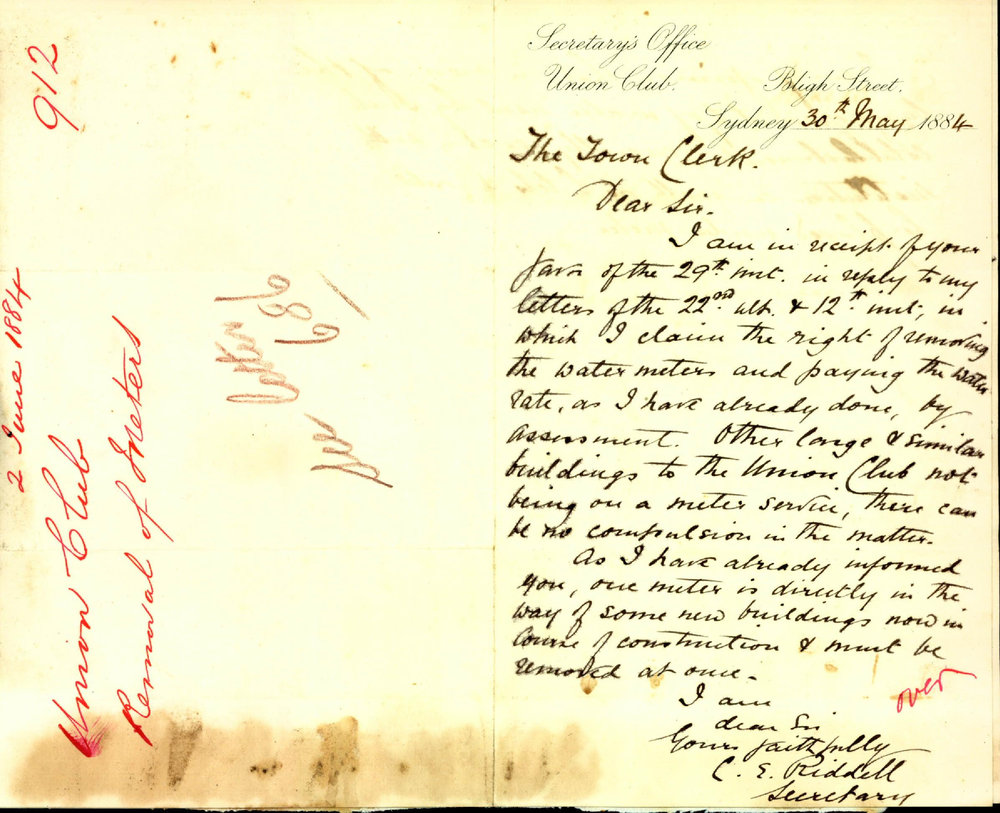 912
2 June 1884
Union Club
Removal of Meters
Secretary's Office
Union Club. Bligh Street.
Sydney 30th May 1884
The Town Clerk.
Dear Sir.
I am in receipt of your
favor of the 29th inst. in reply to my
letters of the 22nd ult. & 12th inst, in
which I claim the right of removing
the water meters and paying the water
rate, as I have already done, by
assessment. Other large & similar
buildings to the Union Club not
being on a meter service, there can
be no compulsion in the matter.
As I have already informed
you, one meter is directly in the
way of some new buildings now in
course of construction & must be
removed at once.
I am
dear Sir
Yours faithfully
C. E. Riddell
Secretary
over